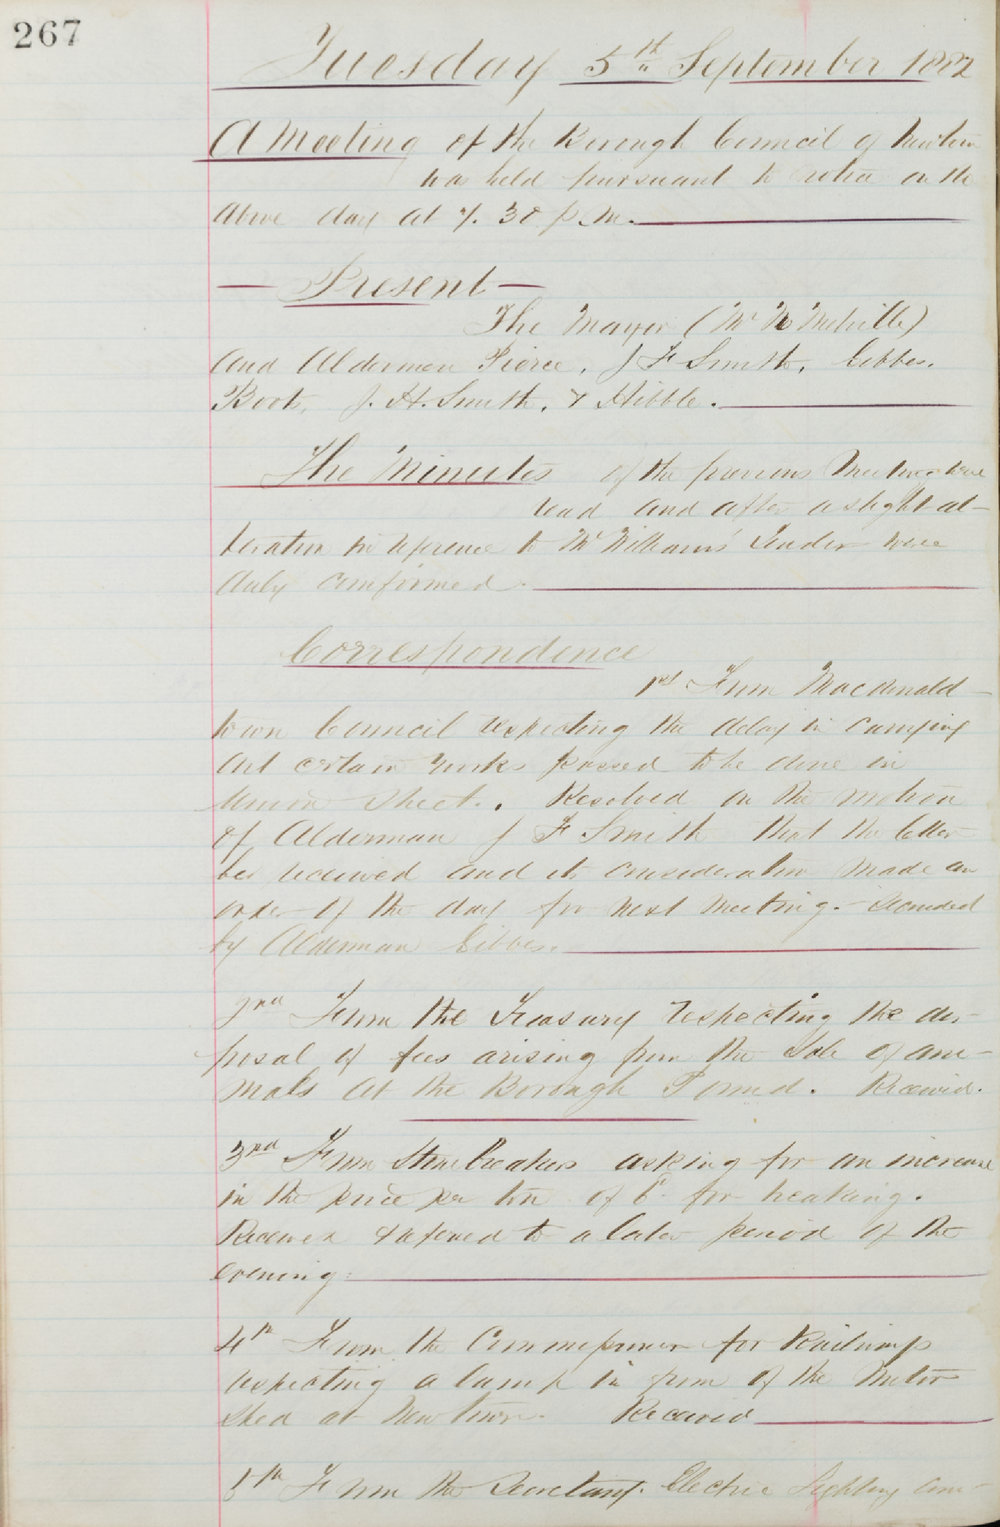 267
Tuesday 5th September 1882
A Meeting of the Borough Council of Newtown
was held pursuant to notice on the
above day at 7.30 p.m.
— Present —
The Mayor (Mr Melville)
and Aldermen Pierce, J F Smith, Gibbes,
Boots, J. H. Smith, & Hibble.
The Minutes of the previous Meeting were
read and after a slight al-
teration in reference to Mr Williams' Tender were
duly confirmed.
Correspondence
1st From Macdonald-
town Council respecting the delay in carrying
out certain works passed to be done in
Union Street. Resolved on the motion
of Alderman J F Smith that the letter
be received and its consideration made an
order of the day for next meeting. Seconded
by Alderman Gibbes.
2nd From the Treasury respecting the dis-
posal of fees arising from the Sale of ani-
mals at the Borough Pound. Received.
3rd From Stonebreakers asking for an increase
in the price per ton of 6d for breaking.
Received & referred to a later period of the
evening.
4th From the Commissioner for Railways
respecting a lamp in front of the Motor
Shed at Newtown. Received
5th From the Secretary Electric Lighting Com-